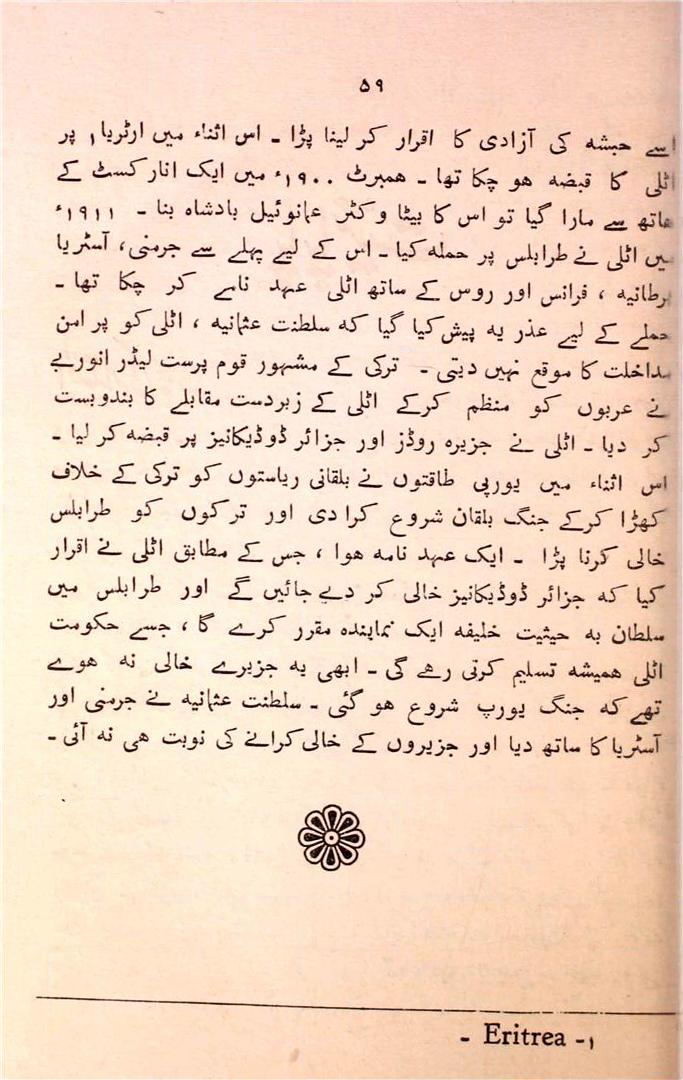 ۵۹
اسے حبشہ کی آزادی کا اقرار کر لینا پڑا ۔ اس اثناء میں ارٹریا۱ پر
اٹلی کا قبضہ ہو چکا تھا ۔ ہمبرٹ ۱۹۰۰ء میں ایک انارکسٹ کے
ہاتھ سے مارا گیا تو اس کا بیٹا وکٹر عمانوئیل بادشاہ بنا ۔ ۱۹۱۱ء
میں اٹلی نے طرابلس پر حملہ کیا ۔ اس کے لیے پہلے سے جرمنی، آسٹریا
برطانیہ ، فرانس اور روس کے ساتھ اٹلی عہد نامے کر چکا تھا ۔
حملے کے لیے عذر یہ پیش کیا گیا کہ سلطنت عثمانیہ ، اٹلی کو پر امن
مداخلت کا موقع نہیں دیتی ۔ ترکی کے مشہور قوم پرست لیڈر انوربے
نے عربوں کو منظم کرکے اٹلی کے زبردست مقابلے کا بندوبست
کر دیا ۔ اٹلی نے جزیرہ روڈز اور جزائر ڈوڈیکانیز پر قبضہ کر لیا ۔
اس اثناء میں یورپی طاقتوں نے بلقانی ریاستوں کو ترکی کے خلاف
کھڑا کرکے جنگ بلقان شروع کرا دی اور ترکوں کو طرابلس
خالی کرنا پڑا ۔ ایک عہد نامہ ہوا ، جس کے مطابق اٹلی نے اقرار
کیا کہ جزائر ڈوڈیکانیز خالی کر دیے جائیں گے اور طرابلس میں
سلطان بہ حیثیت خلیفہ ایک نمایندہ مقرر کرے گا ، جسے حکومت
اٹلی ہمیشہ تسلیم کرتی رہے گی ۔ ابھی یہ جزیرے خالی نہ ہوے
تھے کہ جنگ یورپ شروع ہو گئی ۔ سلطنت عثمانیہ نے جرمنی اور
آسٹریا کا ساتھ دیا اور جزیروں کے خالی کرانے کی نوبت ہی نہ آئی ۔
۱- Eritrea -